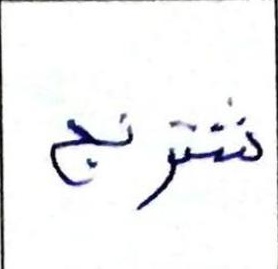 شترنج